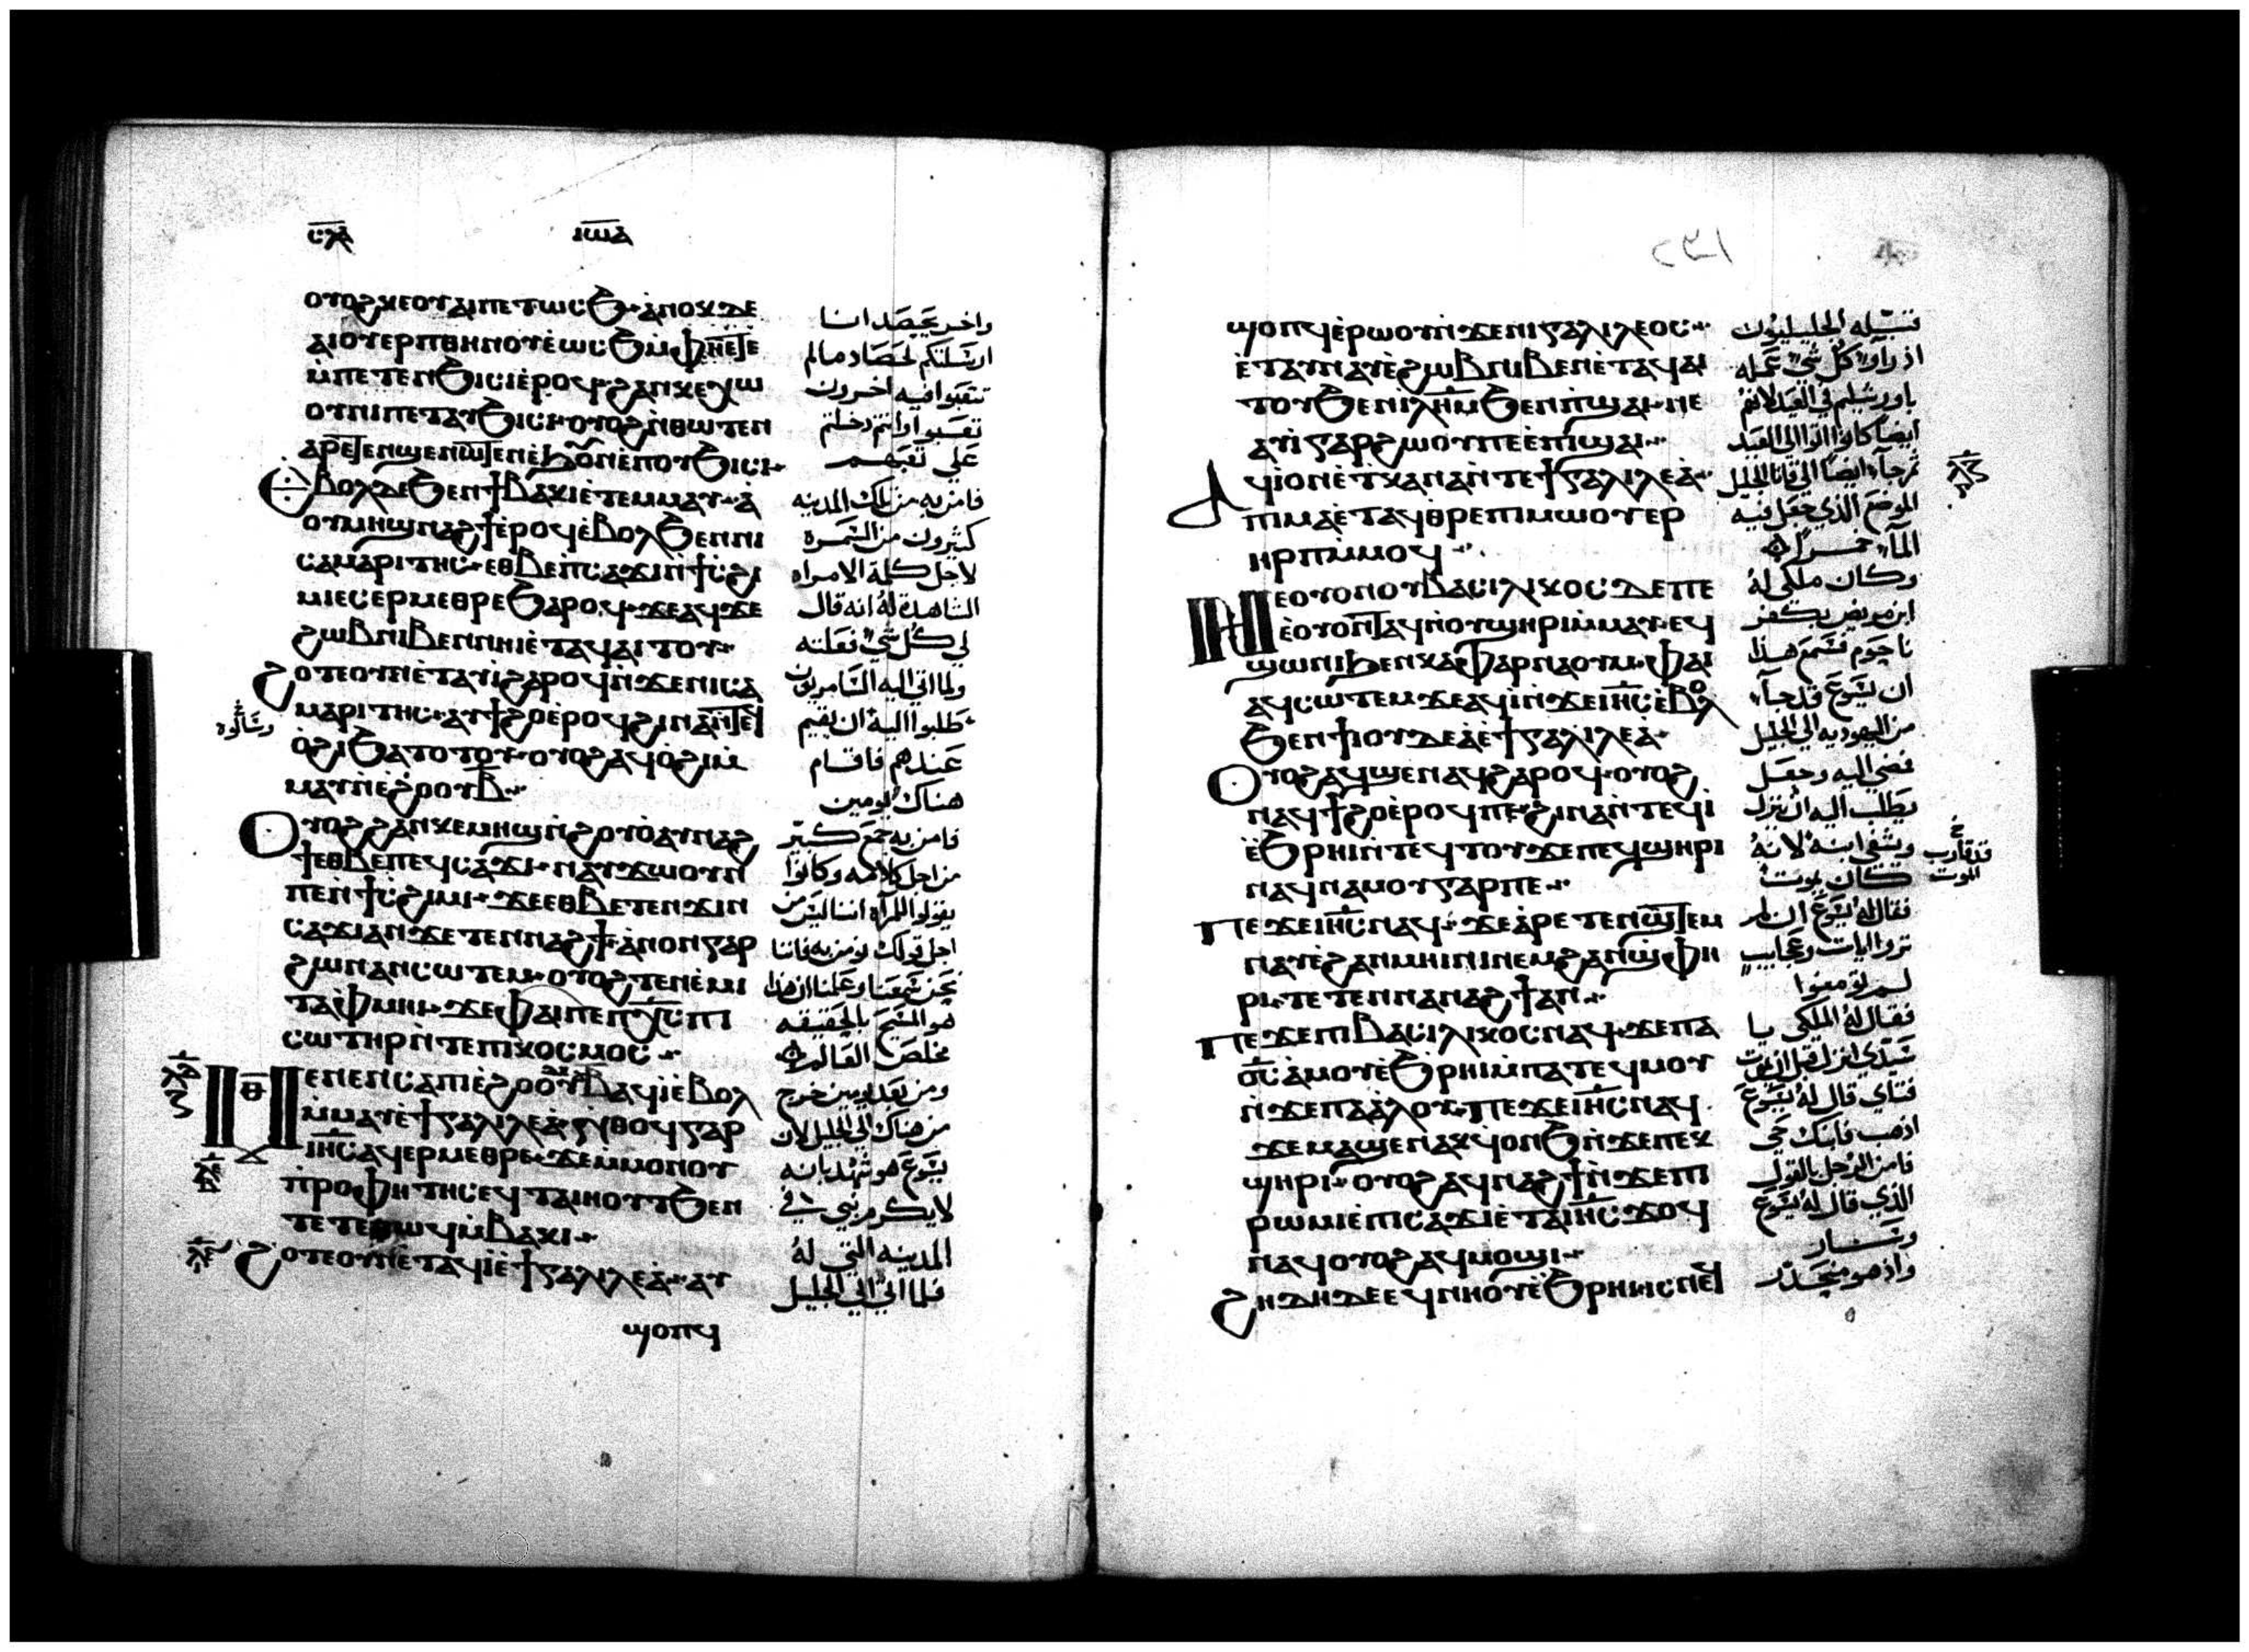 ⲥⲗⲁ ⲓⲱⲁ
ⲟⲩⲟϩ ⲕⲉⲟⲩⲁⲓ ⲡⲉⲧⲱⲥϧ ⲁⲛⲟⲕ ⲇⲉ
ⲁⲓⲟⲩⲉⲣⲡ ⲑⲏⲛⲟⲩ ⲉⲱⲥϧ ⲙⲫⲏⲉⲧⲉ
ⲙⲡⲉⲧⲉⲛϧⲓⲥⲓ ⲉⲣⲟϥ ϩⲁⲛⲕⲉⲭⲱ
ⲟⲩⲛⲓ ⲡⲉⲧⲁⲩϧⲓⲥⲓ ⲟⲩⲟϩ ⲛⲑⲱⲧⲉⲛ
ⲁⲣⲉⲧⲉⲛϣⲉⲛⲱⲧⲉⲛ ⲉϧⲟⲩⲛ ⲉⲡⲟⲩϧⲓⲥⲓ
ⲉⲃⲟⲗ ⲇⲉ ϧⲉⲛ ϯⲃⲁⲕⲓ ⲉⲧⲉⲙⲙⲁⲩ ⲁ
ⲟⲩⲙⲏϣ ⲛⲁϩϯ ⲉⲣⲟϥ ⲉⲃⲟⲗ ϧⲉⲛ ⲛⲓ
ⲥⲁⲙⲁⲣⲓⲧⲏⲥ ⲉⲑⲃⲉ ⲡⲥⲁϫⲓ ⲛϯⲥϩⲓ
ⲙⲓ ⲉⲥⲉⲣⲙⲉⲑⲣⲉ ϧⲁⲣⲟϥ ϫⲉ ⲁϥϫⲉ
ϩⲱⲃ ⲛⲓⲃⲉⲛ ⲛⲏⲓ ⲉⲧⲁϥⲁⲓⲧⲟⲩ
ϩⲟⲧⲉ ⲟⲩⲛ ⲉⲧⲁⲩⲓ ϩⲁⲣⲟϥ ⲛϫⲉ ⲛⲓⲥⲁ
ⲙⲁⲣⲓⲧⲏⲥ ⲁⲩϯϩⲟ ⲉⲣⲟϥ ϩⲓⲛⲁ ⲛⲧⲉϥ
ⲟϩⲓ ϧⲁⲧⲟⲧⲟⲩ ⲟⲩⲟϩ ⲁϥⲟϩⲓ ⲙ
ⲙⲁⲩ ⲛⲉϩⲟⲟⲩ ⲃ
ⲟⲩⲟϩ ϩⲁⲛⲕⲉⲙⲏϣ ⲛϩⲟⲩⲟ ⲁⲩⲛⲁϩ
ϯ ⲉⲑⲃⲉ ⲡⲉϥⲥⲁϫⲓ ⲛⲁⲩϫⲱ ⲟⲩⲛ
ⲡⲉ ⲛϯⲥϩⲓⲙⲓ ϫⲉ ⲉⲑⲃⲉ ⲧⲉⲛϫⲓⲛ
ⲥⲁϫⲓ ⲁⲛ ϫⲉ ⲧⲉⲛⲛⲁϩϯ ⲁⲛⲟⲛ ⲅⲁⲣ
ϩⲱⲛ ⲁⲛⲥⲱⲧⲉⲙ ⲟⲩⲟϩ ⲧⲉⲛⲉⲙⲓ
ⲧⲁⲫⲙⲏⲓ ϫⲉ ⲫⲁⲓ ⲡⲉ ⲡⲭⲥ ⲡⲓ
ⲥⲱⲧⲏⲣ ⲛⲧⲉ ⲡⲓⲕⲟⲥⲙⲟⲥ
ⲑ ⲙⲉⲛⲉⲛⲥⲁ ⲡⲓⲉϩⲟⲟⲩ ⲃ ⲁϥⲓ ⲉⲃⲟⲗ
ⲙⲙⲁⲩ ⲉϯⲅⲁⲗⲓⲗⲉⲁ ⲛⲑⲟϥ ⲅⲁⲣ
ⲓⲏⲥ ⲁϥⲉⲣⲙⲉⲑⲣⲉ ϫⲉ ⲙⲙⲟⲛ ⲟⲩ
ⲡⲣⲟⲫⲏⲧⲏⲥ ⲉϥⲧⲁⲓⲏⲟⲩⲧ ϧⲉⲛ
ⲧⲉⲧⲉⲑⲱϥ ⲙⲃⲁⲕⲓ
ϩⲟⲧⲉ ⲟⲩⲛ ⲉⲧⲁϥⲓ ⲉϯⲅⲁⲗⲓⲗⲉⲁ ⲁⲩ
ϣⲟⲡϥ
واخر يحصد انا
ارسلتكم لحصاد ما لم
تتعبوا فيه اخرون
تعبوا وانتم دخلتم
على تعبهم
فامن به من تلك المدينه
كثيرون من السمرة
لاجل كلمة الامراه
الشاهدة له انه قال
لي كل شي فعلته
ولما اتى اليه السامريون
طلبوا اليه ان يقيم
عندهم فاقام
هناك يومين
فامن به جمع كثير
من اجل كلامه وكانوا
يقولوا للمراه اننا ليس من
اجل قولك نومن به فاننا
نحن سمعنا وعلمنا ان هذا
هو المسيح بالحقيقه
مخلص العالم
ومن بعد يومين خرج
من هناك الى الجليل لان
يسوع هو شهد بانه
لا يكرم نبي في
المدينه التي له
فلما اتى الى الجليل
وسالوه
١٣٦
ϣⲟⲡϥ ⲉⲣⲱⲟⲩ ⲛϫⲉ ⲛⲓⲅⲁⲗⲓⲗⲉⲟⲥ
ⲉⲧⲁⲩⲛⲁⲩ ⲉϩⲱⲃ ⲛⲓⲃⲉⲛ ⲉⲧⲁϥⲁⲓ
ⲧⲟⲩ ϧⲉⲛ ⲓⲗⲏⲙ ϧⲉⲛ ⲡϣⲁⲓ ⲛⲉ
ⲁⲩⲓ ⲅⲁⲣ ϩⲱⲟⲩ ⲡⲉ ⲉⲡϣⲁⲓ
ⲁϥⲓ ⲟⲛ ⲉⲧⲕⲁⲛⲁ ⲛⲧⲉ ϯⲅⲁⲗⲓⲗⲉⲁ
ⲡⲓⲙⲁ ⲉⲧⲁϥⲑⲣⲉ ⲡⲓⲙⲱⲟⲩ ⲉⲣ
ⲏⲣⲡ ⲙⲙⲟϥ
ⲛⲉ ⲟⲩⲟⲛ ⲟⲩⲃⲁⲥⲓⲗⲓⲕⲟⲥ ⲇⲉ ⲡⲉ
ⲉⲟⲩⲟⲛⲧⲁϥ ⲛⲟⲩϣⲏⲣⲓ ⲙⲙⲁⲩ ⲉϥ
ϣⲱⲛⲓ ϧⲉⲛ ⲕⲁⲫⲁⲣⲛⲁⲟⲩⲙ ⲫⲁⲓ
ⲁϥⲥⲱⲧⲉⲙ ϫⲉ ⲁϥⲓ ⲛϫⲉ ⲓⲏⲥ ⲉⲃⲟⲗ
ϧⲉⲛ ϯⲓⲟⲩⲇⲉⲁ ⲉϯⲅⲁⲗⲓⲗⲉⲁ
ⲟⲩⲟϩ ⲁϥϣⲉⲛⲁϥ ϩⲁⲣⲟϥ ⲟⲩⲟϩ
ⲛⲁϥϯϩⲟ ⲉⲣⲟϥ ⲡⲉ ϩⲓⲛⲁ ⲛⲧⲉϥⲓ
ⲉϧⲣⲏⲓ ⲛⲧⲉϥⲧⲟⲩϫⲉ ⲡⲉϥϣⲏⲣⲓ
ⲛⲁϥⲛⲁⲙⲟⲩ ⲅⲁⲣ ⲡⲉ
ⲡⲉϫⲉ ⲓⲏⲥ ⲛⲁϥ ϫⲉ ⲁⲣⲉⲧⲉⲛϣⲧⲉⲙ
ⲛⲁⲩ ⲉϩⲁⲛⲙⲏⲓⲛⲓ ⲛⲉⲙ ϩⲁⲛϣⲫⲏ
ⲣⲓ ⲧⲉⲧⲉⲛⲛⲁⲛⲁϩϯ ⲁⲛ
ⲡⲉϫⲉ ⲡⲓⲃⲁⲥⲓⲗⲓⲕⲟⲥ ⲛⲁϥ ϫⲉ ⲡⲁ
ⲟⲥ ⲁⲙⲟⲩ ⲉϧⲣⲏⲓ ⲙⲡⲁⲧⲉϥⲙⲟⲩ
ⲛϫⲉ ⲡⲁⲁⲗⲟⲩ ⲡⲉϫⲉ ⲓⲏⲥ ⲛⲁϥ
ϫⲉ ⲙⲁϣⲉⲛⲁⲕ ϥⲟⲛϧ ⲛϫⲉ ⲡⲉⲕ
ϣⲏⲣⲓ ⲟⲩⲟϩ ⲁϥⲛⲁϩϯ ⲛϫⲉ ⲡⲓ
ⲣⲱⲙⲓ ⲉⲡⲓⲥⲁϫⲓ ⲉⲧⲁ ⲓⲏⲥ ϫⲟϥ
ⲛⲁϥ ⲟⲩⲟϩ ⲁϥⲙⲟϣⲓ
ϩⲏⲇⲏ ⲇⲉ ⲉϥⲛⲏⲟⲩ ⲉϧⲣⲏⲓ ⲓⲥ ⲛⲉϥ
فتسلمه الجليليون
اذ راوا كل شي عمله
باورشليم في العيد لانهم
ايضا كانوا اتوا الى العيد
ثم جاء ايضا الى قانا الجليل
الموضع الذي جعل فيه
الماء خمرا
وكان ملكي له
ابن مريض بكفر
ناحوم فسمع هذا
ان يسوع قد جاء
من اليهوديه الى الجليل
فمضى اليه وجعل
يطلب اليه ان ينزل
ويشفي ابنه لانه
كان يموت
فقال له يسوع ان لم
تروا ايات وعجايب
لم تومنوا
فقال له الملكي يا
سيدي انزل قبل ان يموت
فتاي قال له يسوع
اذهب فابنك حي
فامن الرجل بالقول
الذي قال له يسوع
وسار
واذ هو منحدر
قد قارب
الموت